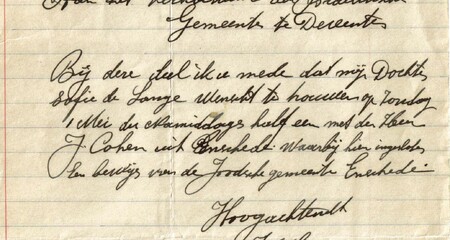 Aan het
Gemeente te Deventer
Bij deze deel ik u mede dat mijn Dochter
Sofie de Lange wenscht te trouwen op Zondag
1 Mei des namiddags half een met den Heer
J. Cohen uit Enschede. Waarbij hier ingesloten
Een bewijs van de Joodsche gemeente Enschede.
Hoogachtendt